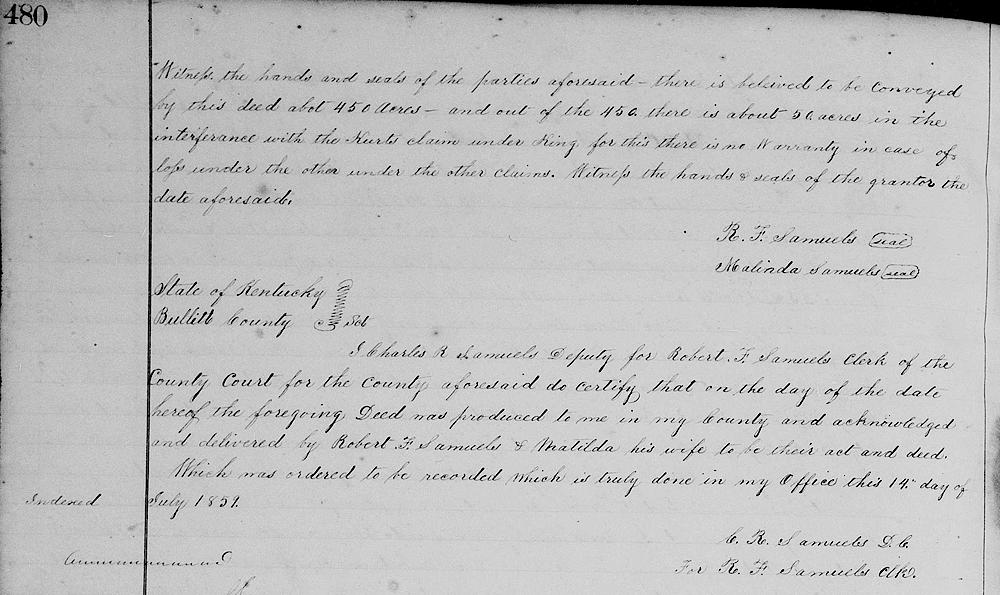 480
Witness the hands and seals of the parties aforesaid - there is belived to be conveyed
by this deed abot 450 Acres - and out of the 450 there is about 50 acres in the
interferance with the Kurts claim under King for this there is no Warranty in case of
loss under the other under the other claims. Witness the hands & seals of the grantor the
date aforesaid.
R. F. Samuels seal
Malinda Samuels seal
State of Kentucky
Bullitt County Sct
I Charles R Samuels Deputy for Robert. F. Samuels Clerk of the
County Court for the County aforesaid do certify that on the day of the date
hereof the foregoing Deed was produced to me in my County and acknowledged
and delivered by Robert F. Samuels & Matilda his wife to be their act and deed.
Which was ordered to be recorded which is truly done in my Office this 14th day of
Indexed July 1851.
C. R. Samuels D. C.
For R. F. Samuels Clk.